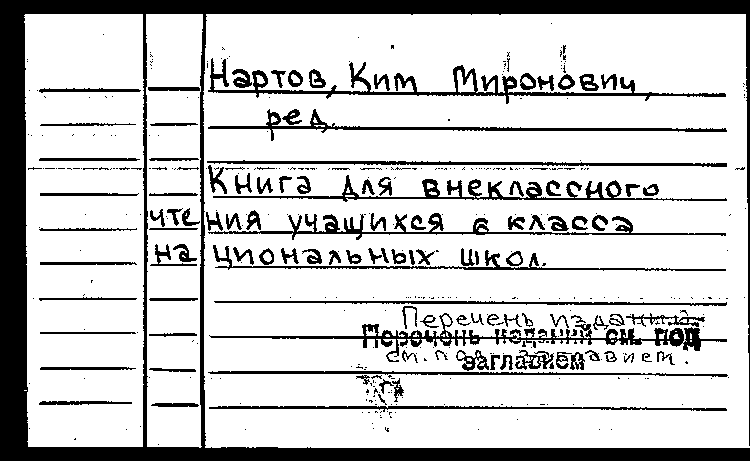 Нартов, Ким Миронович,
ред.
Книга для внеклассного
чтения учащихся 6 класса
национальных школ.
Перечень издания
Перечень изданий см. под
см. под заглавием.
заглавием